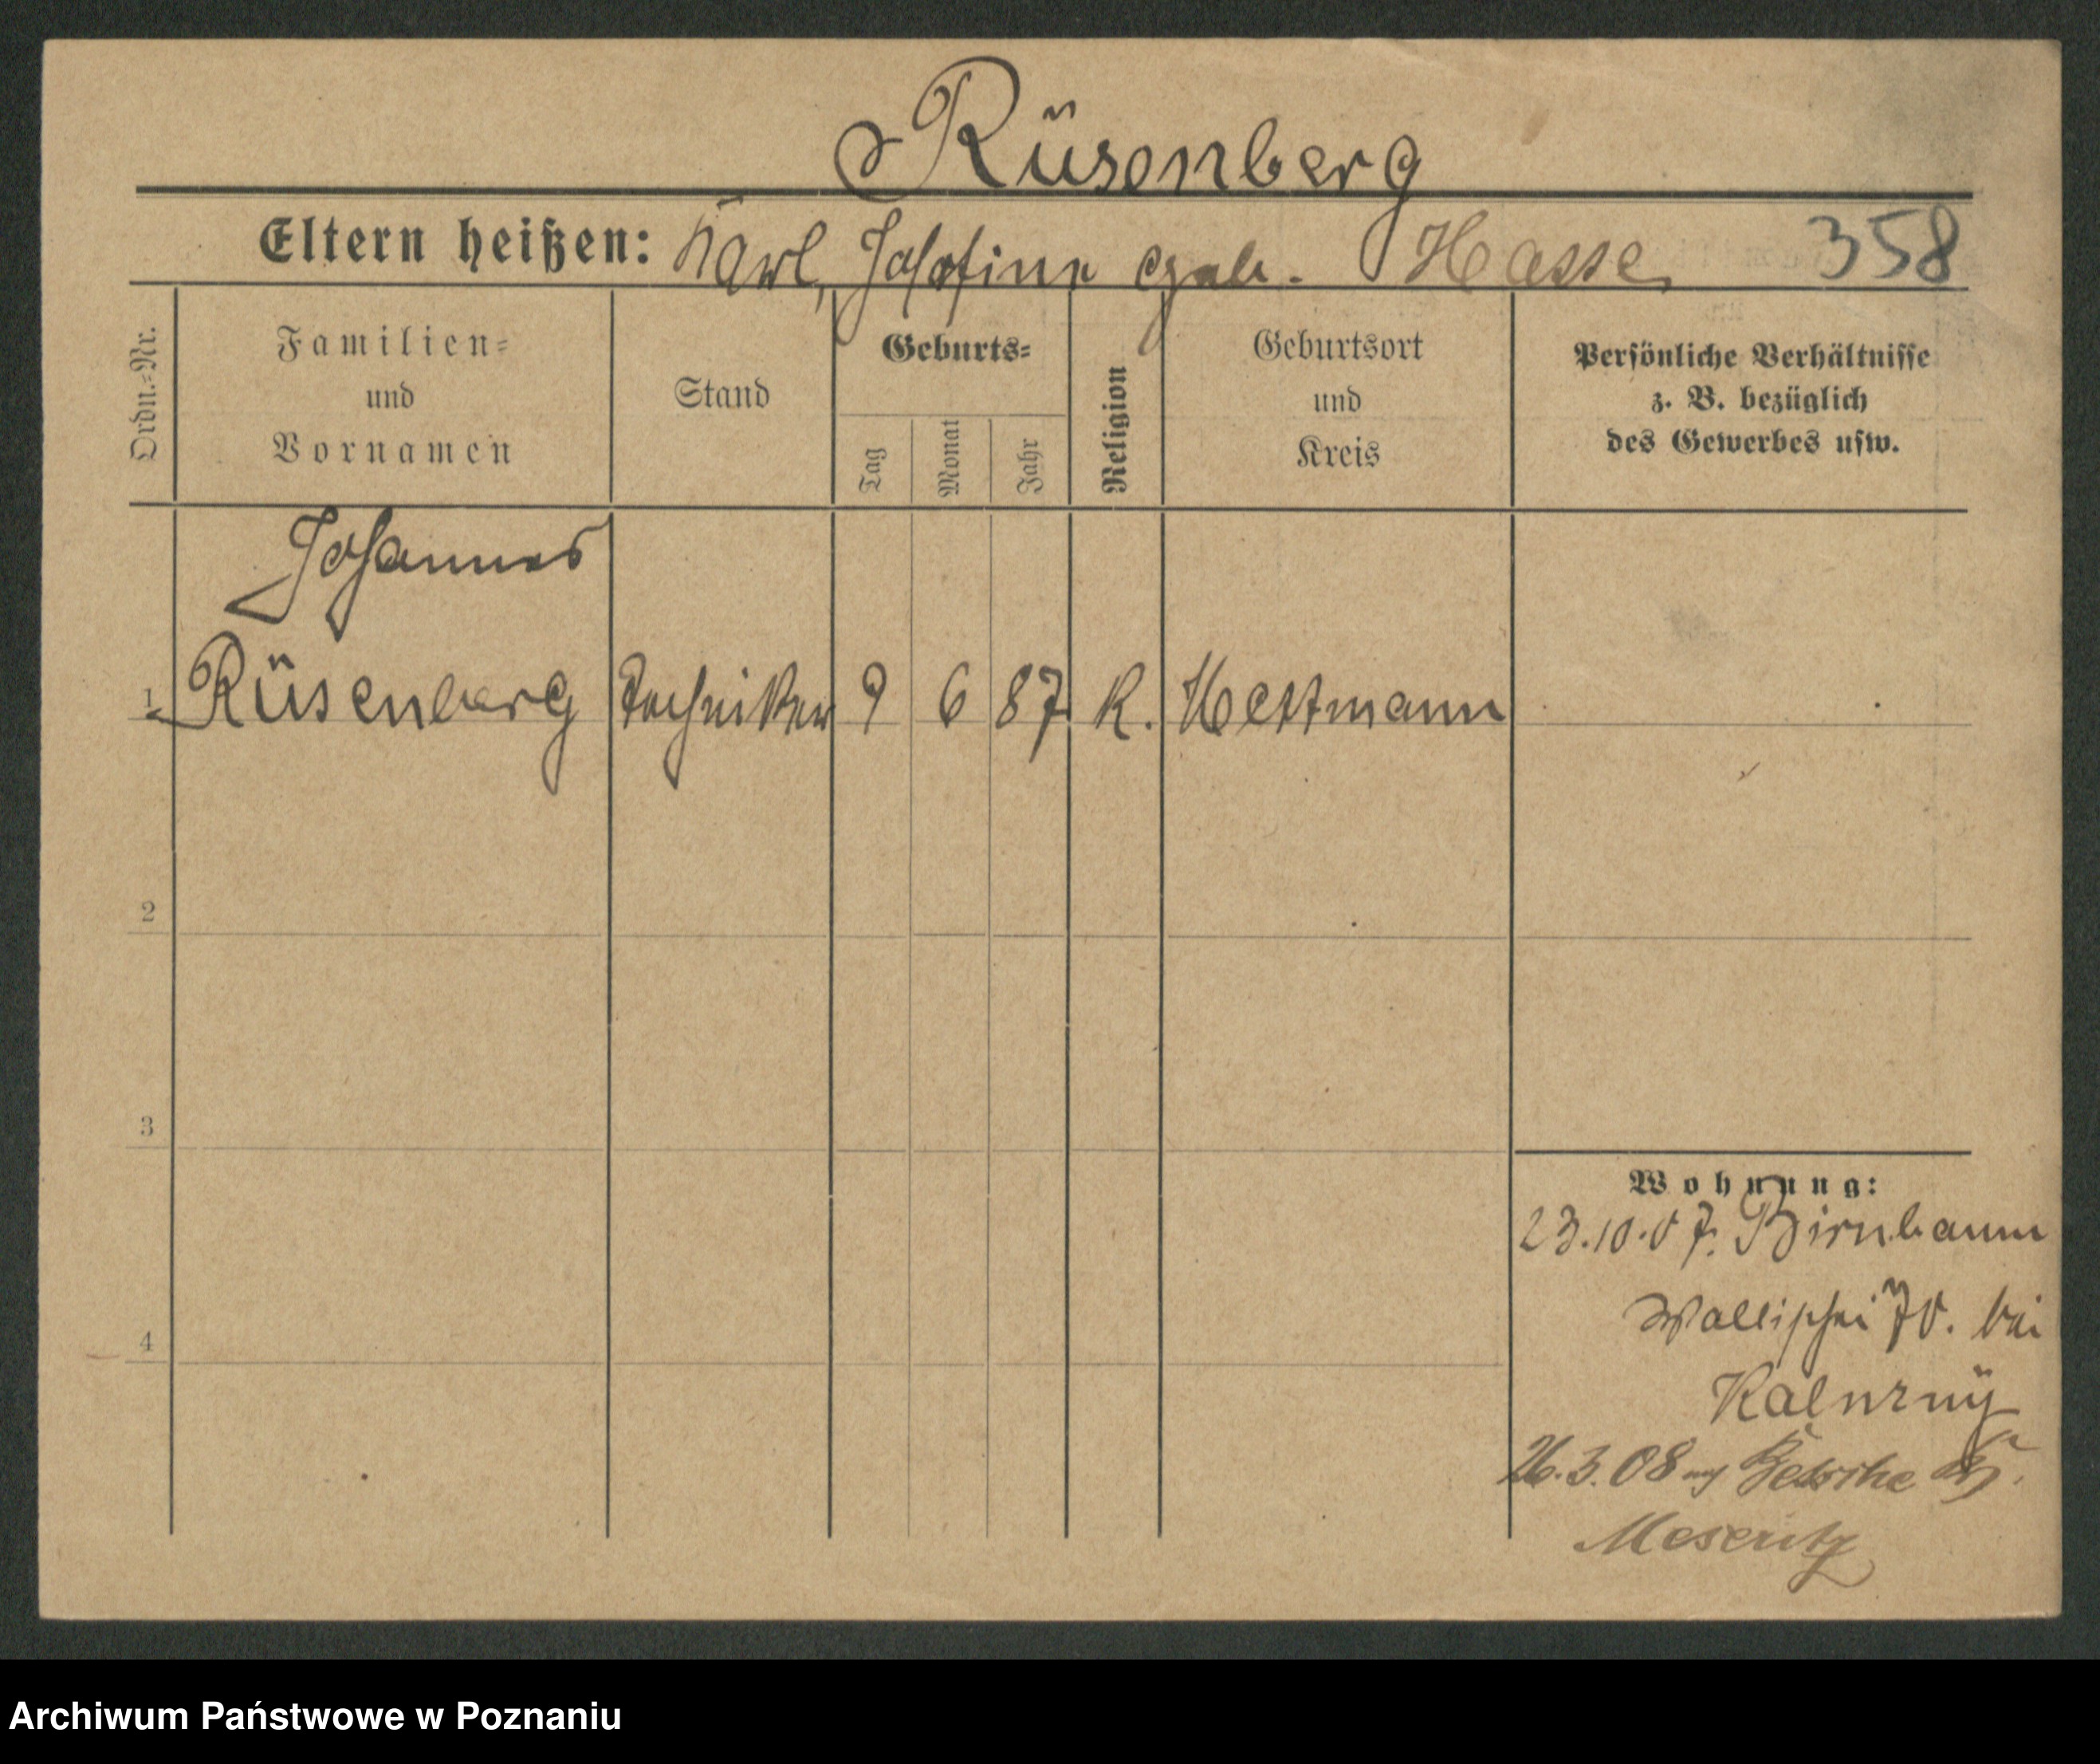 Rüsenberg
Eltern heißen: Karl, Josefine geb. Hasse 358
Ordn.=Nr.
Familien=
und
Vornamen
Stand
Geburts=
Tag
Monat
Jahr
Religion
Geburtsort
und
Kreis
Persönliche Verhältnisse
z. B. bezüglich
des Gewerbes usw.
Johannes
1 Rüsenberg Techniker 9 6 87 K. Hestmann
2
3
4
Wohnung:
23.10.07. Birnbaum
Wallischei 70. bei
26.3.08 Betsche
Meseritz
Archiwum Państwowe w Poznaniu